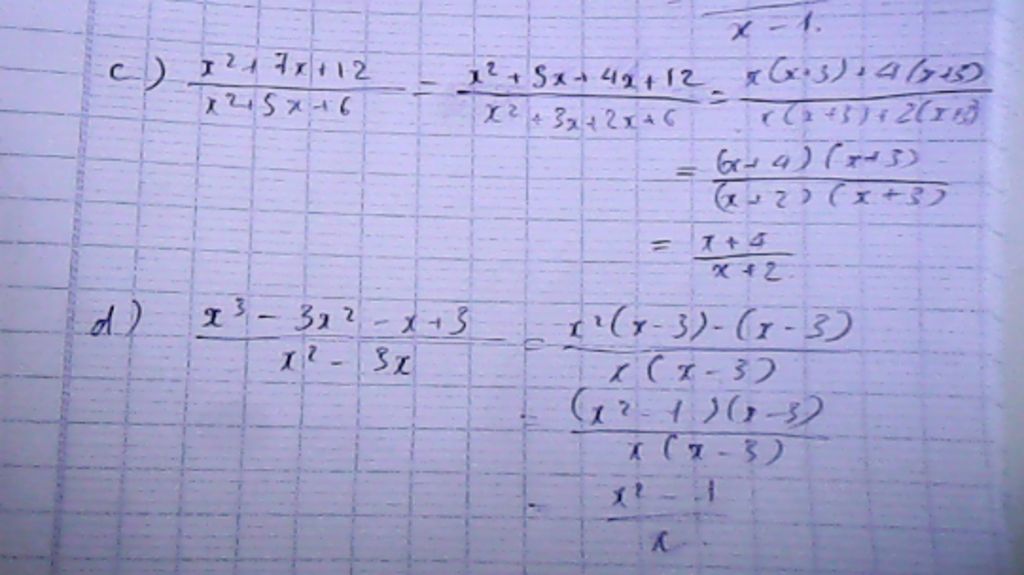 x - 1.
c) (x² + 7x + 12)/(x² + 5x + 6) = (x² + 3x + 4x + 12)/(x² + 3x + 2x + 6) = (x(x+3) + 4(x+3))/(x(x+3) + 2(x+3))
= ((x+4)(x+3))/((x+2)(x+3))
= (x+4)/(x+2)
d) (x³ - 3x² - x + 3)/(x² - 3x) = (x²(x-3) - (x-3))/(x(x-3))
= ((x² - 1)(x-3))/(x(x-3))
= (x² - 1)/x.